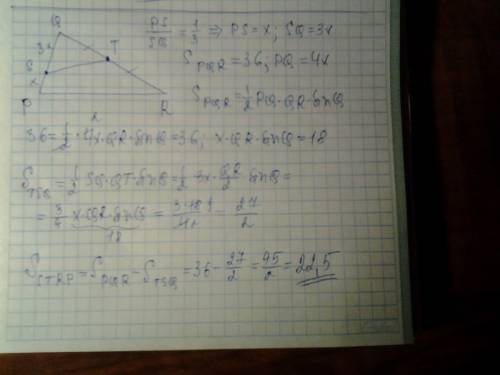 Q
3x
S
T
x
P
R
PS/SQ = 1/3 ⇒ PS = x; SQ = 3x
S_PQR = 36, PQ = 4x
S_PQR = 1/2 PQ · QR · sin Q
36 = 1/2 · 4x · QR · sin Q = 36; x · QR · sin Q = 18
S_TSQ = 1/2 SQ · QT · sin Q = 1/2 · 3x · QR/2 · sin Q =
= 3/4 x · QR · sin Q = = 27/2
18
S_STRP = S_PQR - S_TSQ = 36 - 27/2 = 45/2 = 22,5